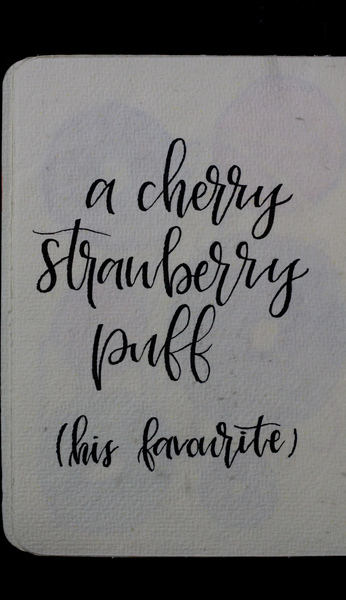 a cherry
strawberry
puff
(his favourite)